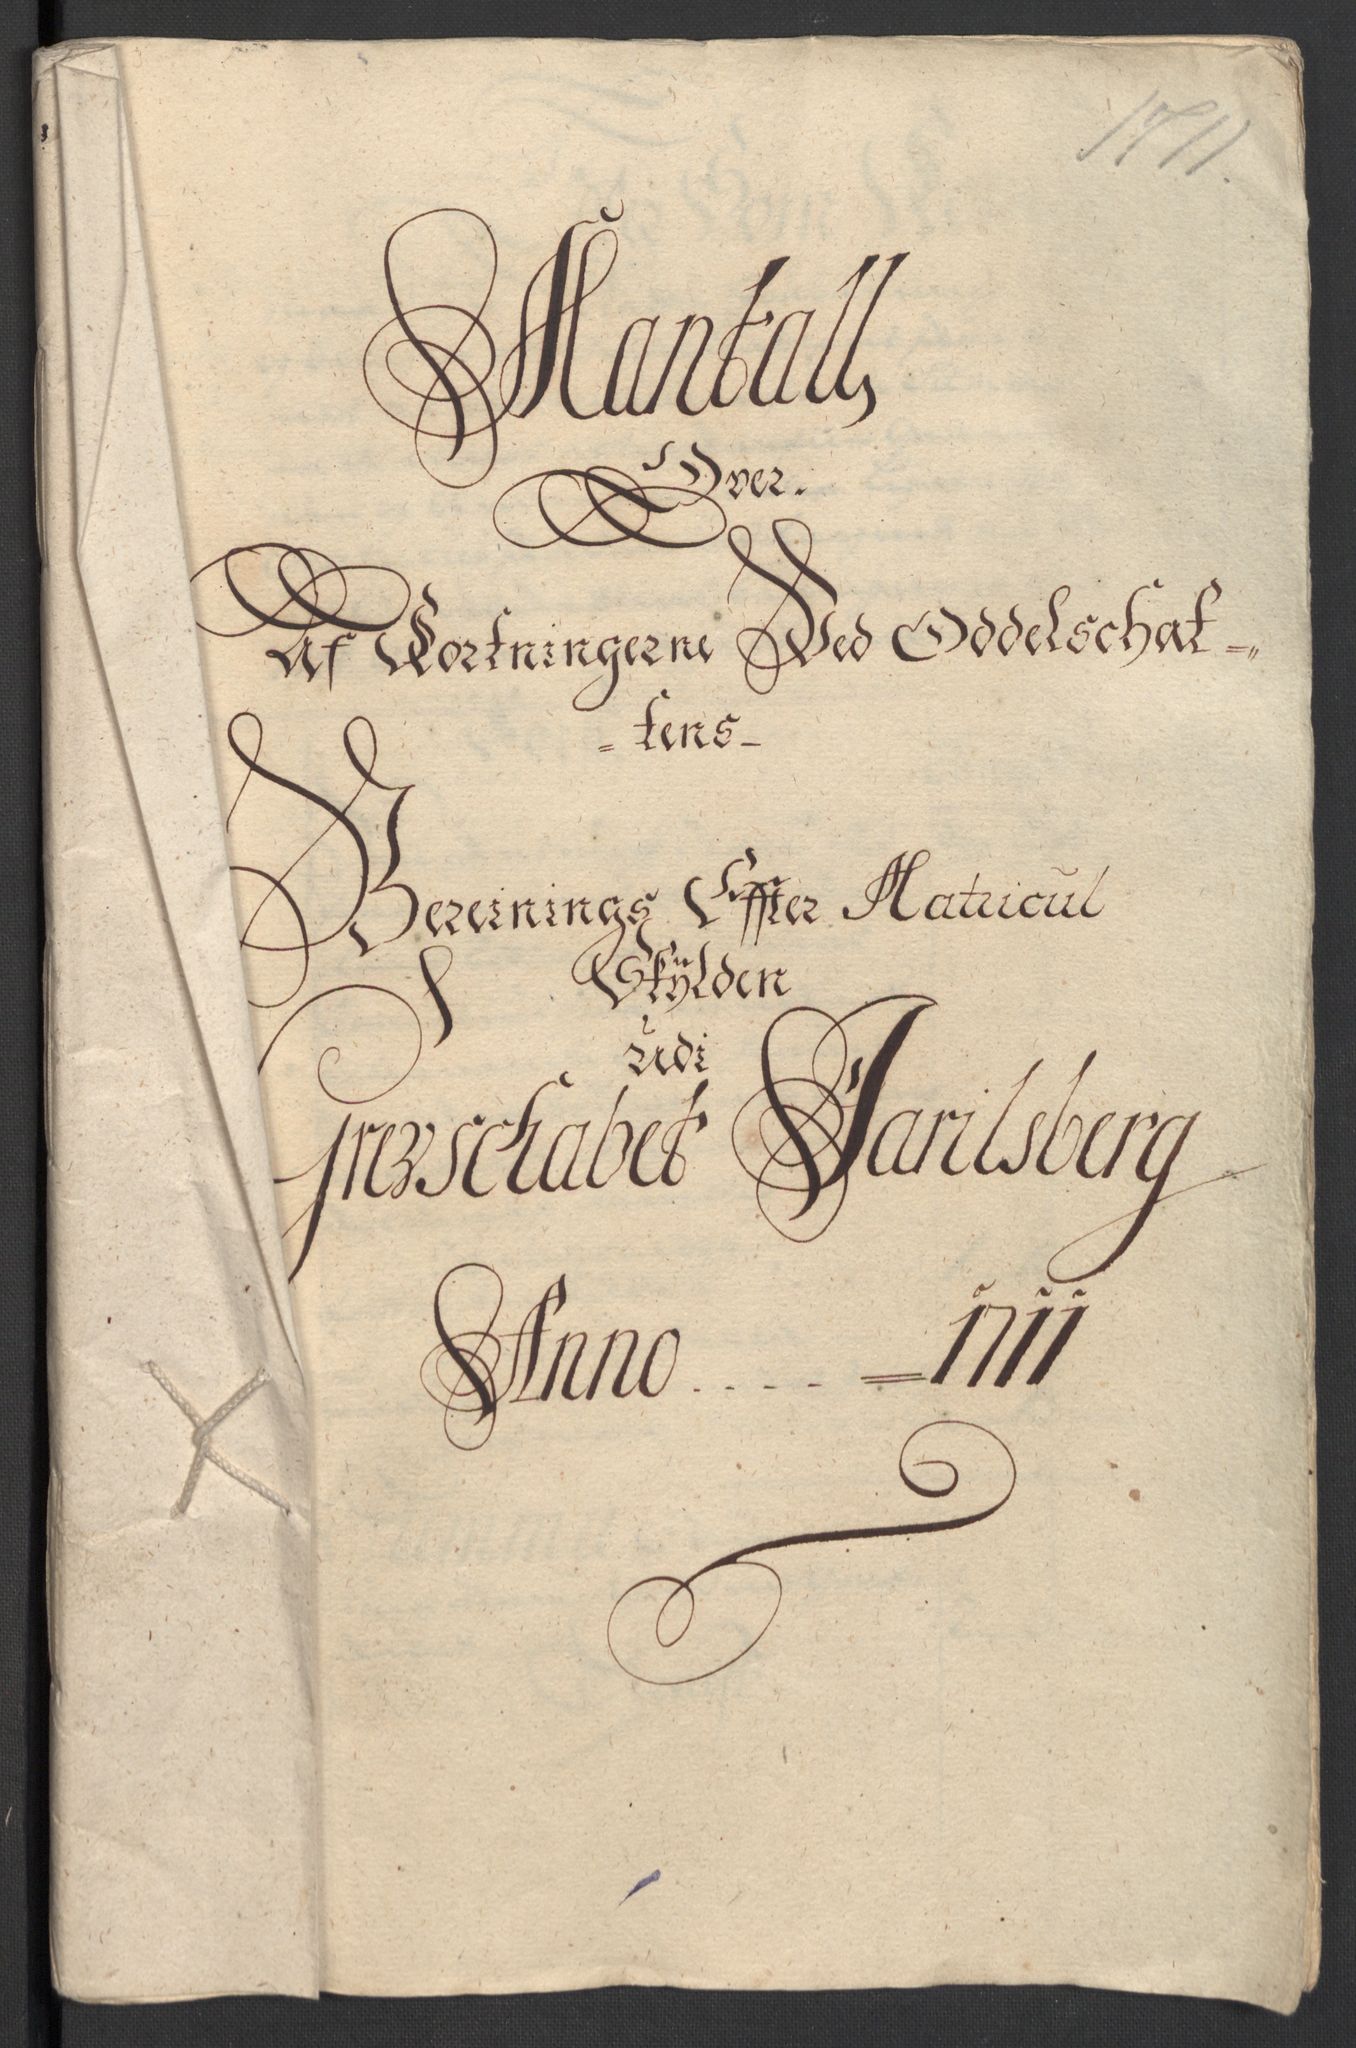 1711.
Mantall,
Over.
Af Kortningerne Ved Oddelschat=
=tens-
Bereinings Effter Matricul
Skÿlden
udi
Grevschabet Jarilsberg
Anno .... =1711